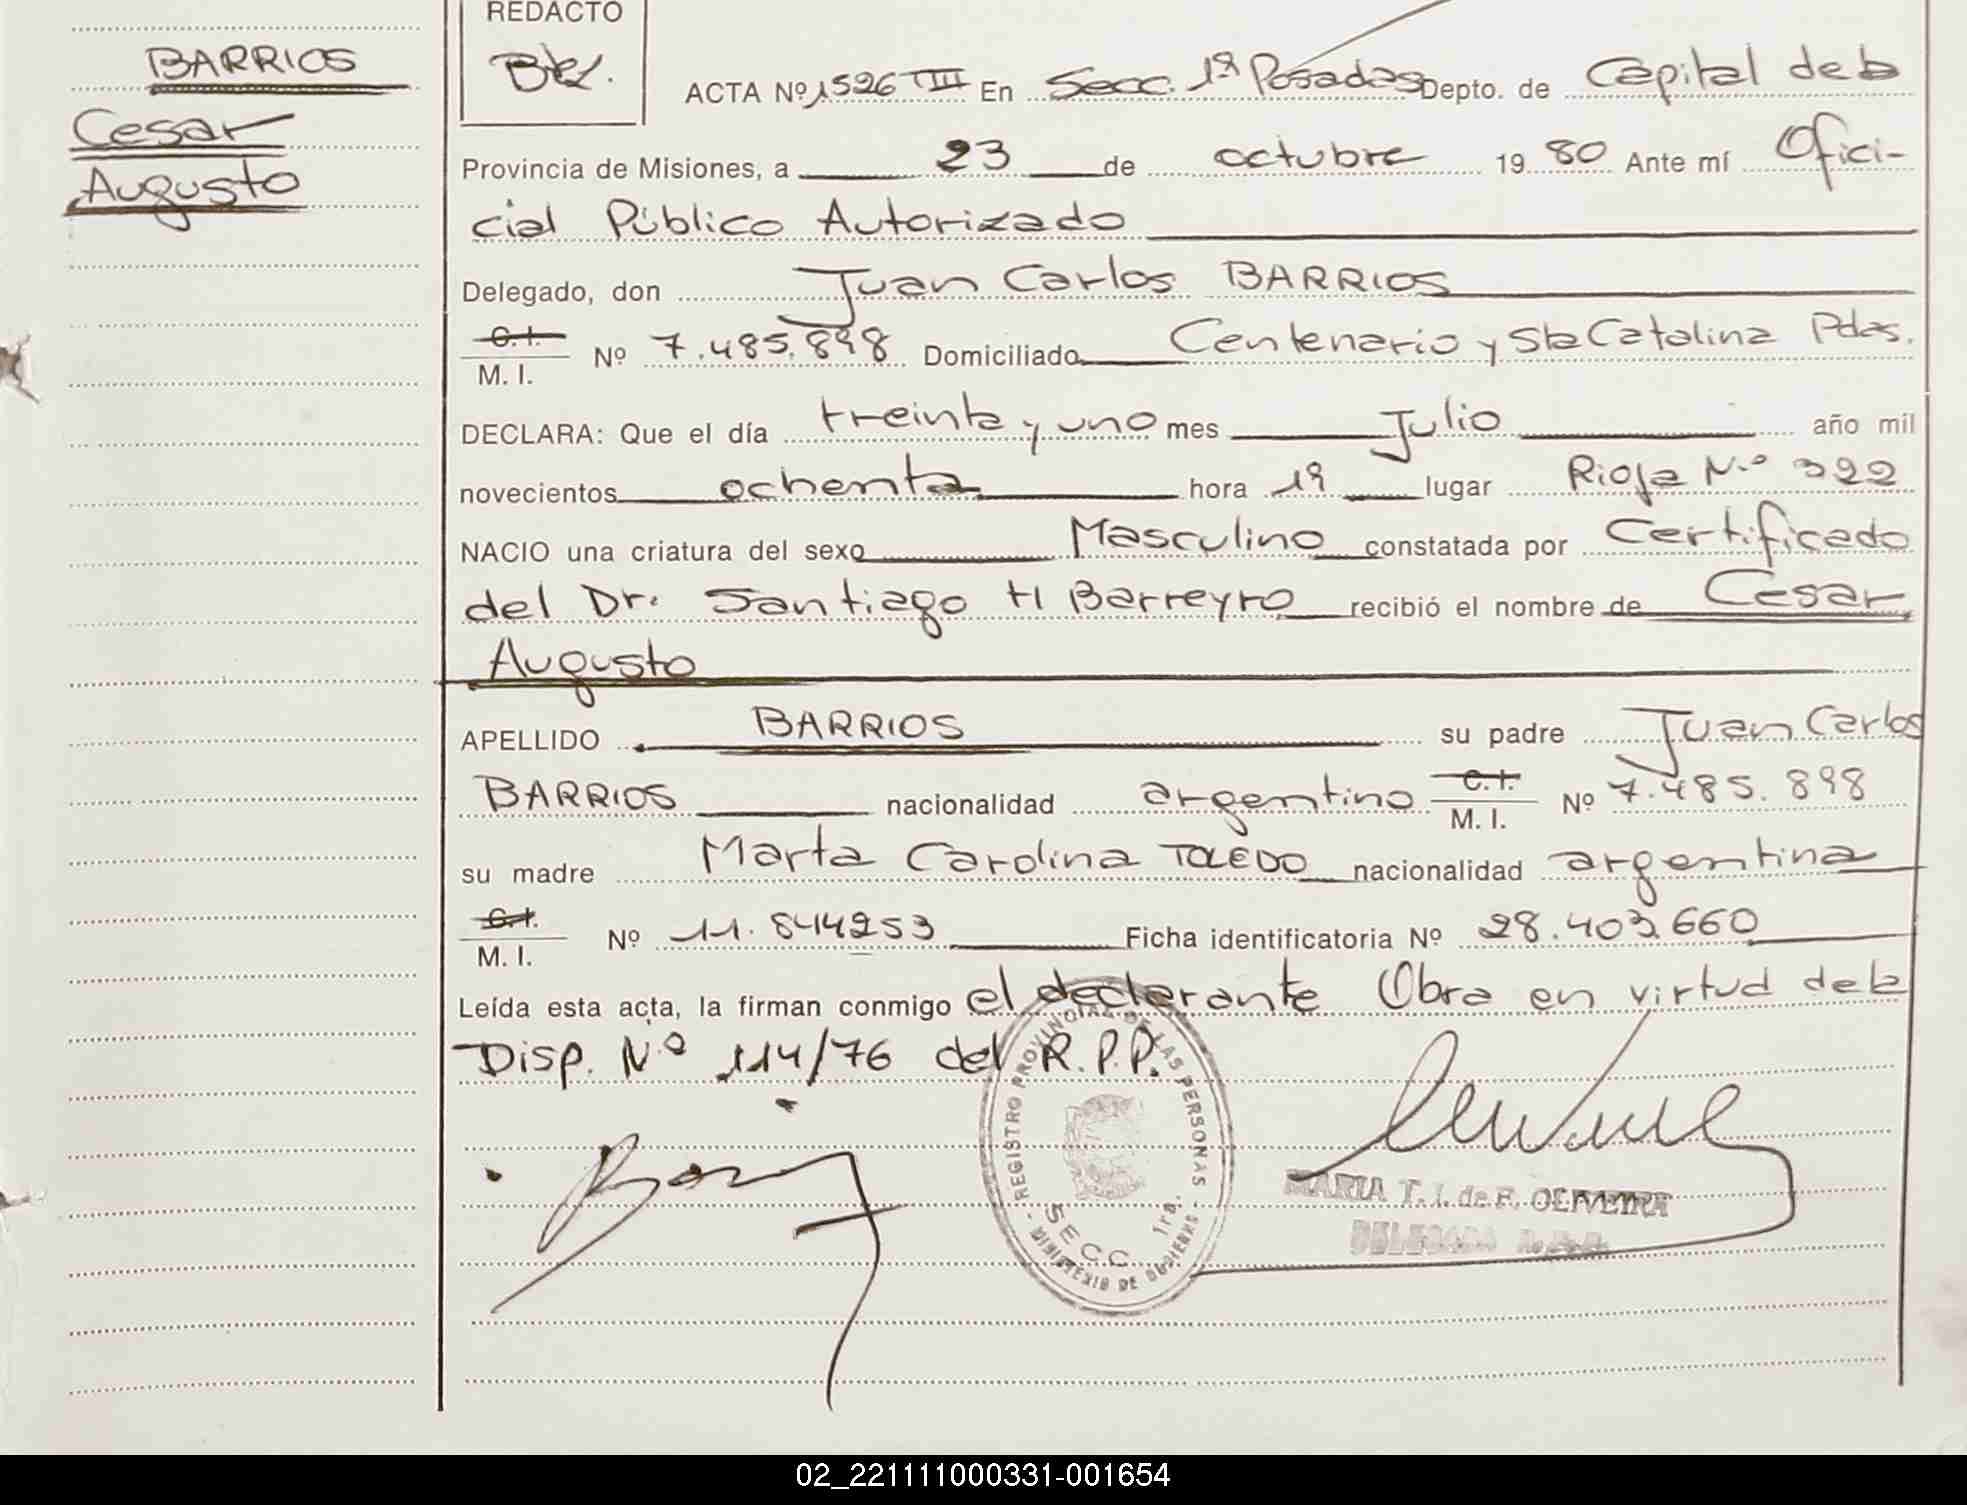 BARRIOS
Cesar
Augusto
REDACTO
ACTA Nº 1526 TIII En Secc. 1ª Posadas Depto. de Capital de la
Provincia de Misiones, a 23 de octubre 19 80 Ante mí Ofici-
cial Público Autorizado
Delegado, don Juan Carlos BARRIOS
C. I.
M. I. Nº 7.485.898 Domiciliado Centenario y Sta Catalina Pdas.
DECLARA: Que el día treinta y uno mes Julio año mil
novecientos ochenta hora 19 lugar Rioja N.º 322
NACIO una criatura del sexo Masculino constatada por Certificado
del Dr. Santiago H Barreyro recibió el nombre de Cesar
Augusto
APELLIDO BARRIOS su padre Juan Carlos
BARRIOS nacionalidad argentino C. I. M. I. Nº 7.485.898
su madre Marta Carolina TOLEDO nacionalidad argentina
C. I.
M. I. Nº 11.844253 Ficha identificatoria Nº 28.403.660
Leída esta acta, la firman conmigo el declarante Obra en virtud de la
Disp. N.º 114/76 del R.P.P.
REGISTRO PROVINCIAL DE LAS PERSONAS
SECC. 1ra.
MINISTERIO DE GOBIERNO
MARIA T. I. de F. OLIVEIRA
DELEGADA R.P.P.
02_221111000331-001654